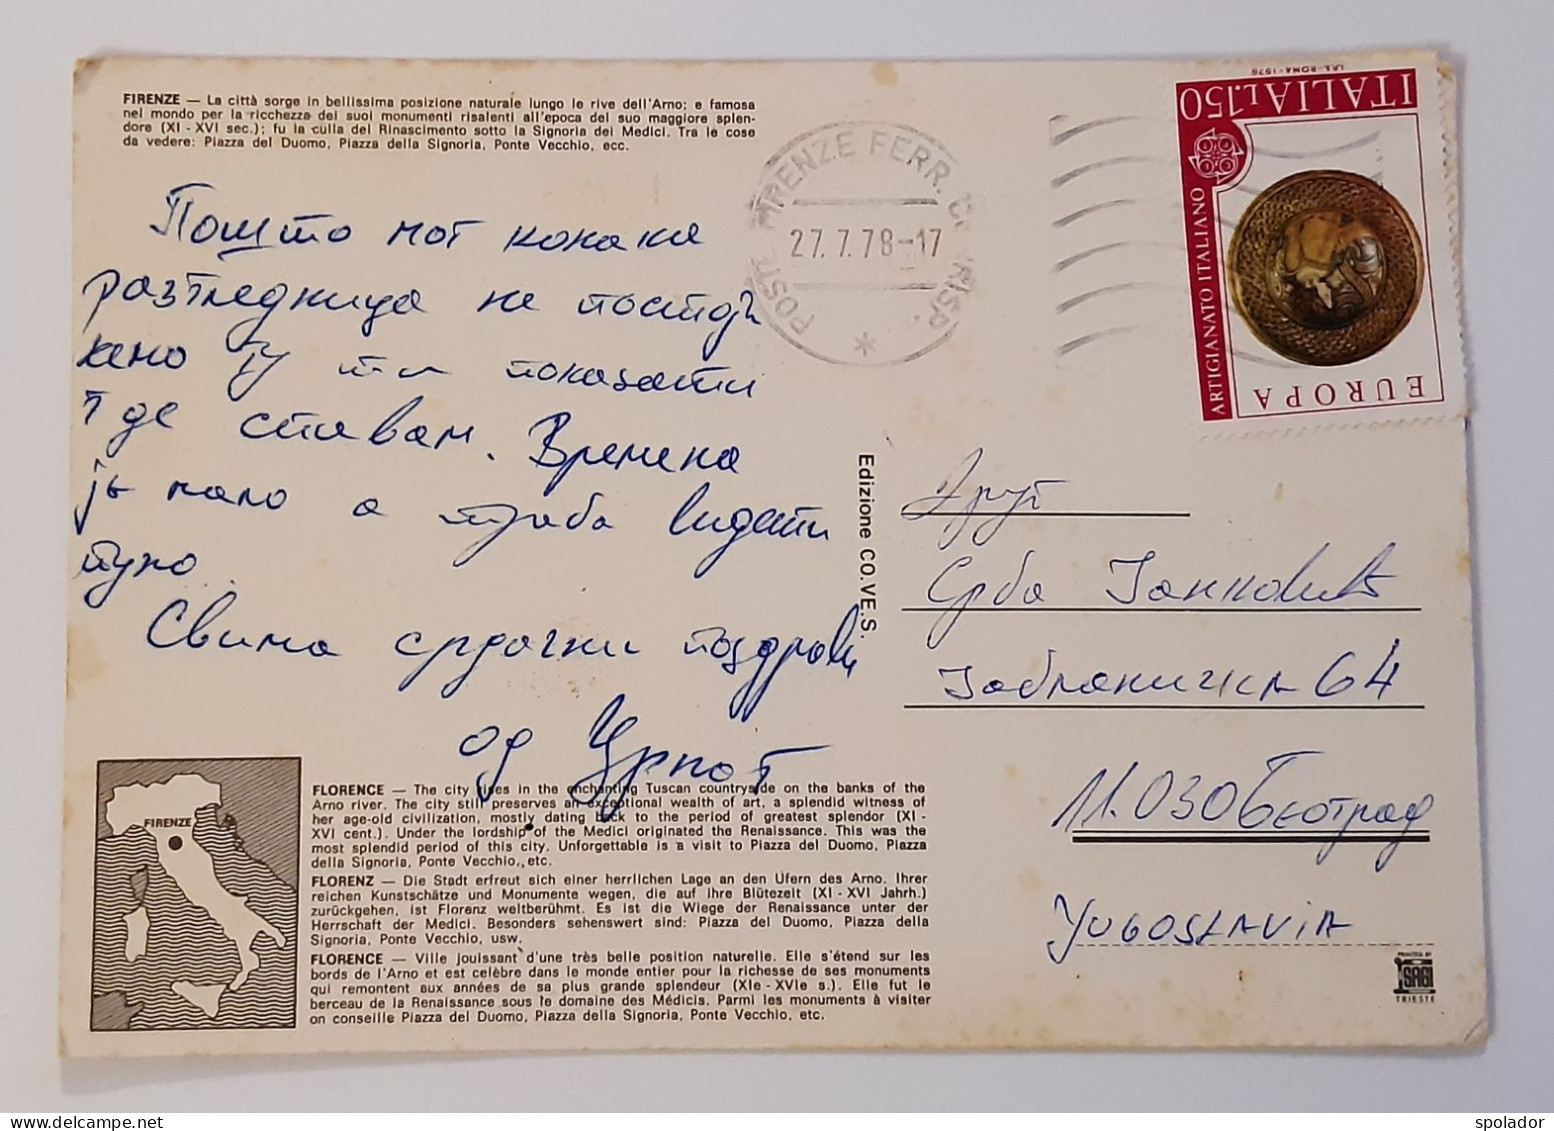 FIRENZE — La città sorge in bellissima posizione naturale lungo le rive dell'Arno; e famosa
nel mondo per la ricchezza dei suoi monumenti risalenti all'epoca del suo maggiore splen-
dore (XI - XVI sec.); fu la culla del Rinascimento sotto la Signoria dei Medici. Tra le cose
da vedere: Piazza del Duomo, Piazza della Signoria, Ponte Vecchio, ecc.
Пошто мот хотела
разгледница не постоји
ћемо ти показати
где спавам. Времена
је мало а треба видети
пуно
Свима срдачни поздрави
од
FLORENCE — The city rises in the enchanting Tuscan countryside on the banks of the
Arno river. The city still preserves an exceptional wealth of art, a splendid witness of
her age-old civilization, mostly dating back to the period of greatest splendor (XI -
XVI cent.). Under the lordship of the Medici originated the Renaissance. This was the
most splendid period of this city. Unforgettable is a visit to Piazza del Duomo, Piazza
della Signoria, Ponte Vecchio,, etc.
FLORENZ — Die Stadt erfreut sich einer herrlichen Lage an den Ufern des Arno. Ihrer
reichen Kunstschätze und Monumente wegen, die auf ihre Blütezeit (XI - XVI Jahrh.)
zurückgehen, ist Florenz weltberühmt. Es ist die Wiege der Renaissance unter der
Herrschaft der Medici. Besonders sehenswert sind: Piazza del Duomo, Piazza della
Signoria, Ponte Vecchio, usw.
FLORENCE — Ville jouissant d'une très belle position naturelle. Elle s'étend sur les
bords de l'Arno et est celèbre dans le monde entier pour la richesse de ses monuments
qui remontent aux années de sa plus grande splendeur (XIe - XVIe s.). Elle fut le
berceau de la Renaissance sous le domaine des Médicis. Parmi les monuments à visiter
on conseille Piazza del Duomo, Piazza della Signoria, Ponte Vecchio, etc.
FIRENZE
Edizione CO.VE.S.
POSTE FIRENZE FERR. CORRISP.
27.7.78-17
I.P.S.-ROMA-1976
ITALIA L.150
ARTIGIANATO ITALIANO
EUROPA
Друг
Срба Јанковић
Јабланичка 64
11.030 Београд
YUGOSLAVIA
PRINTED BY
SAGI
TRIESTE
spolador